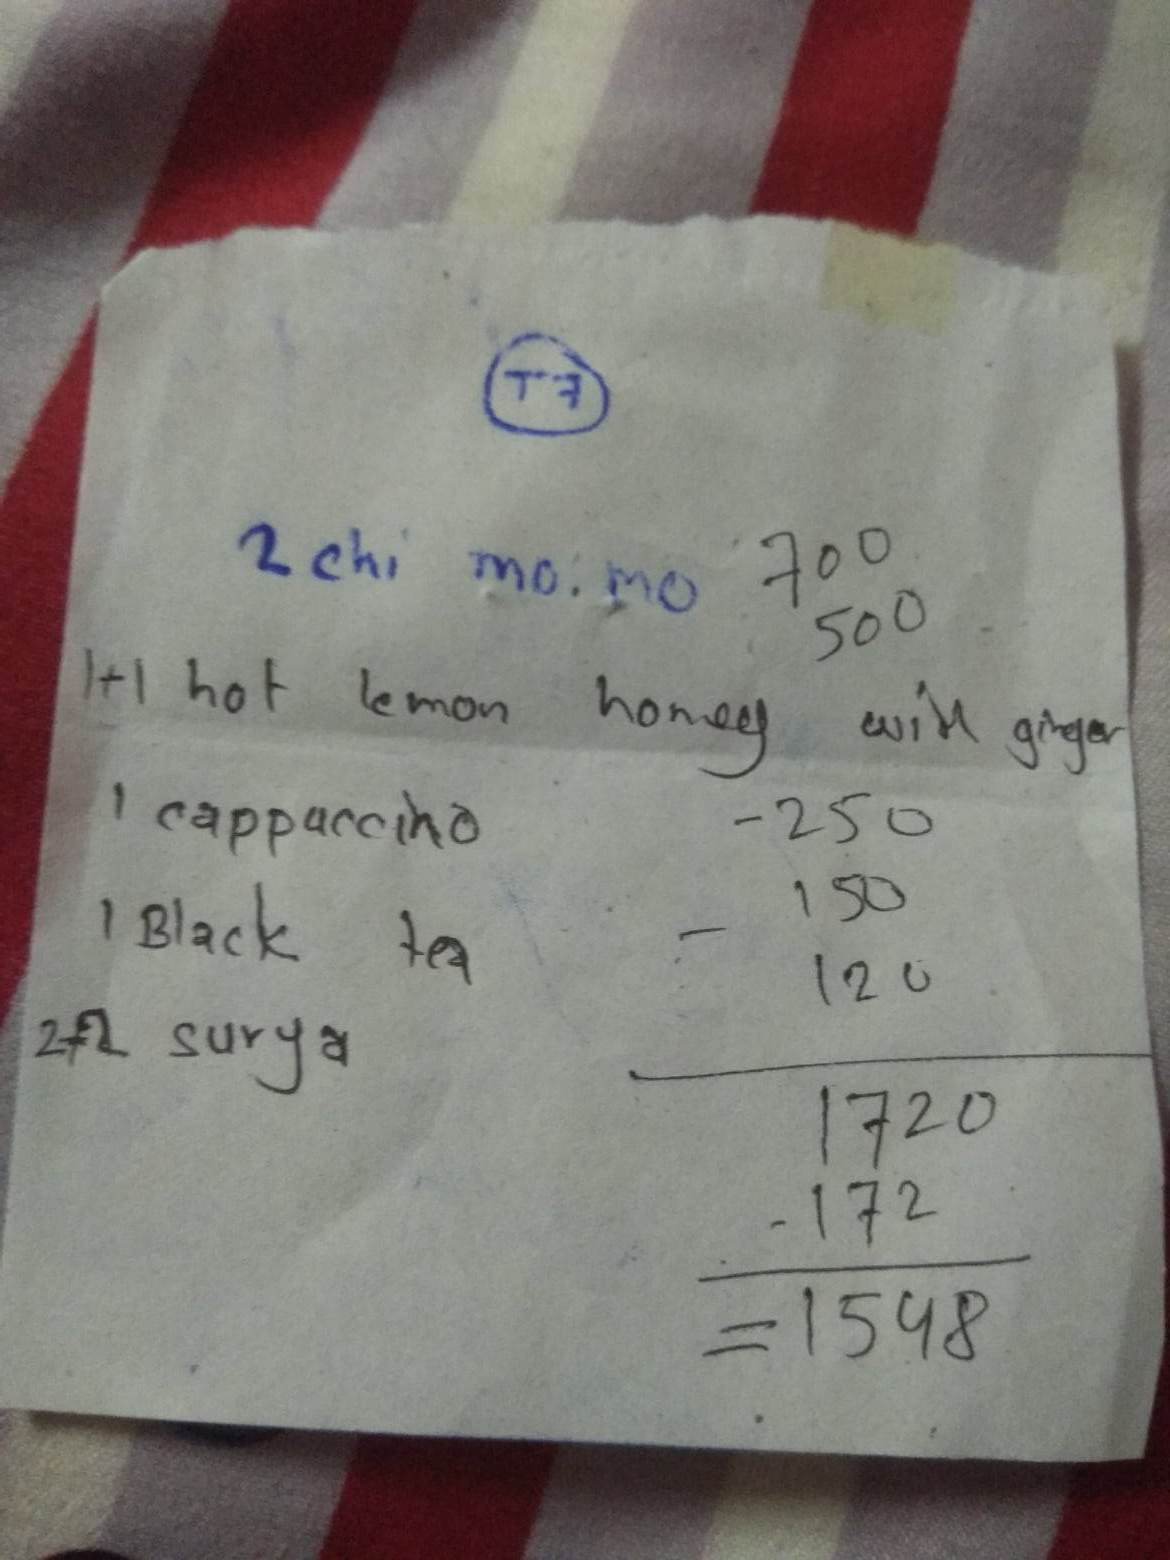 T7
2 chi mo:mo 700
500
1+1 hot lemon honey with ginger
1 cappuccino -250
1 Black tea - 150
120
2+2 surya
1720
-172
=1548